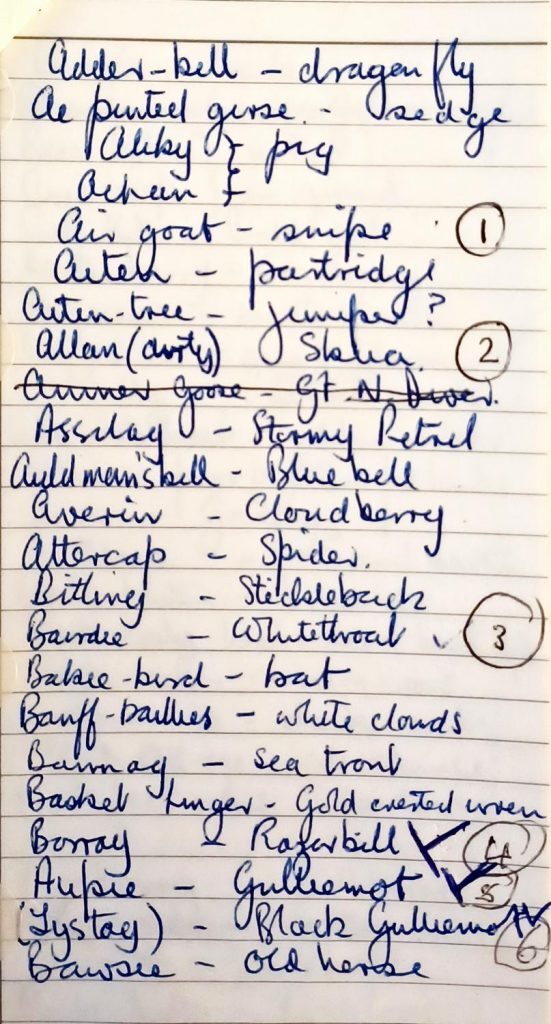 Adder-bell - dragon fly
Ae pinted gerse - sedge
Akky } pig
Achan }
Air goat - snipe ①
Aiten - partridge
Aiten-tree - juniper ?
Allan (dirty) Skua. ②
Ammer goose - Gt. N. Diver.
Assilag - Stormy Petrel
Auld man's bell - Bluebell
Averin - Cloudberry
Attercap - Spider.
Bitling - Stickleback
Bairdie - Whitethroat ✓ ③
Bakie-bird - bat
Banff-baillies - white clouds
Bannag - sea trout
Basket hinger - Gold crested wren
Borray - Razorbill ④
Aupie - Guillemot ✓ ⑤
(Tystay) - Black Guillemot ⑥
Bawsie - old horse